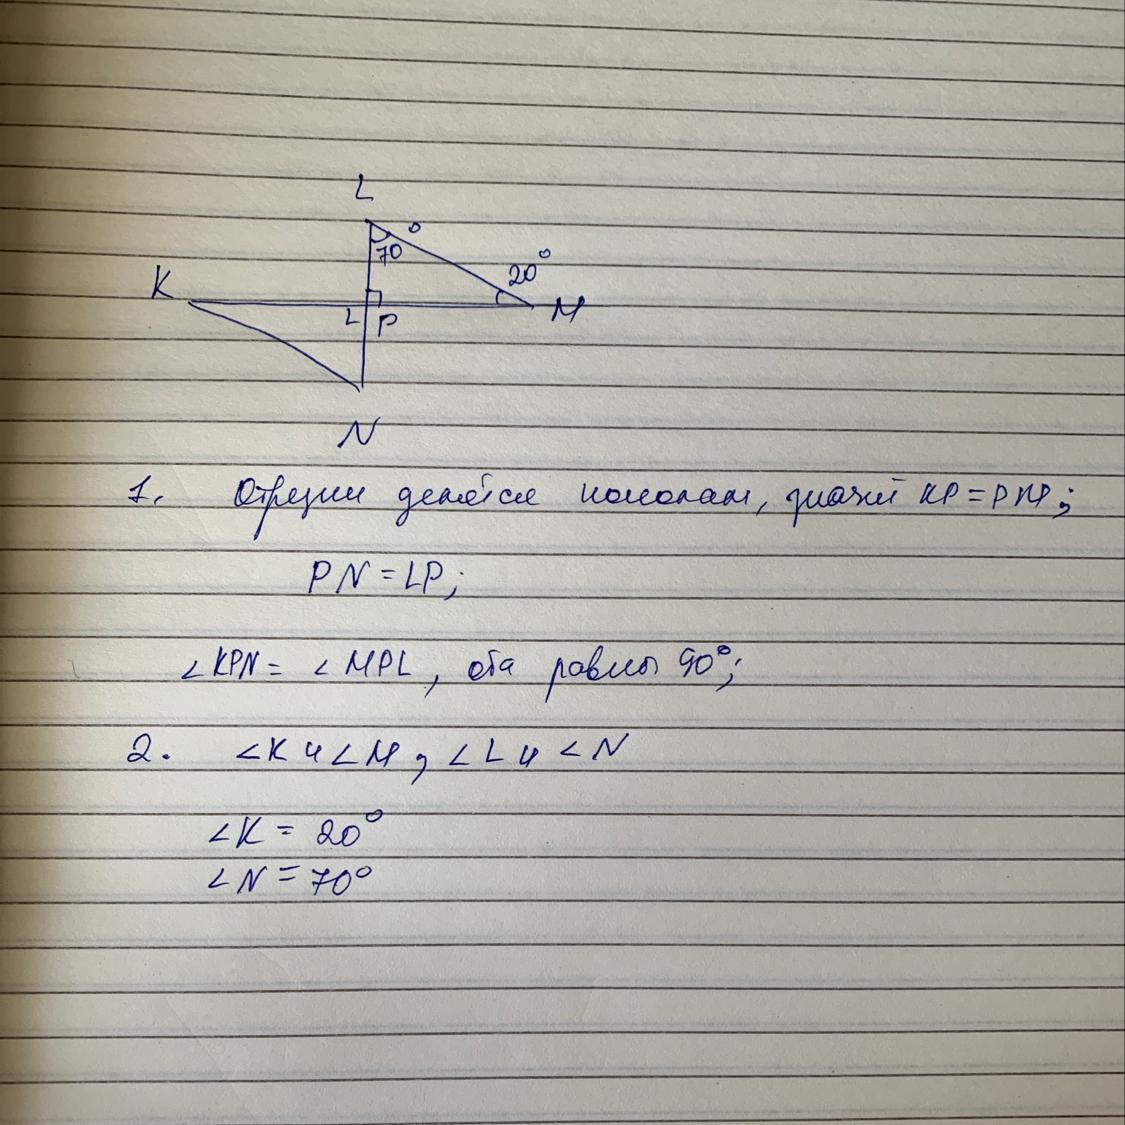 L
70°
20°
K
M
P
N
1. Отрезки делятся пополам, значит KP = PM;
PN = LP;
∠KPN = ∠MPL, оба равны 90°;
2. ∠K и ∠M, ∠L и ∠N
∠K = 20°
∠N = 70°